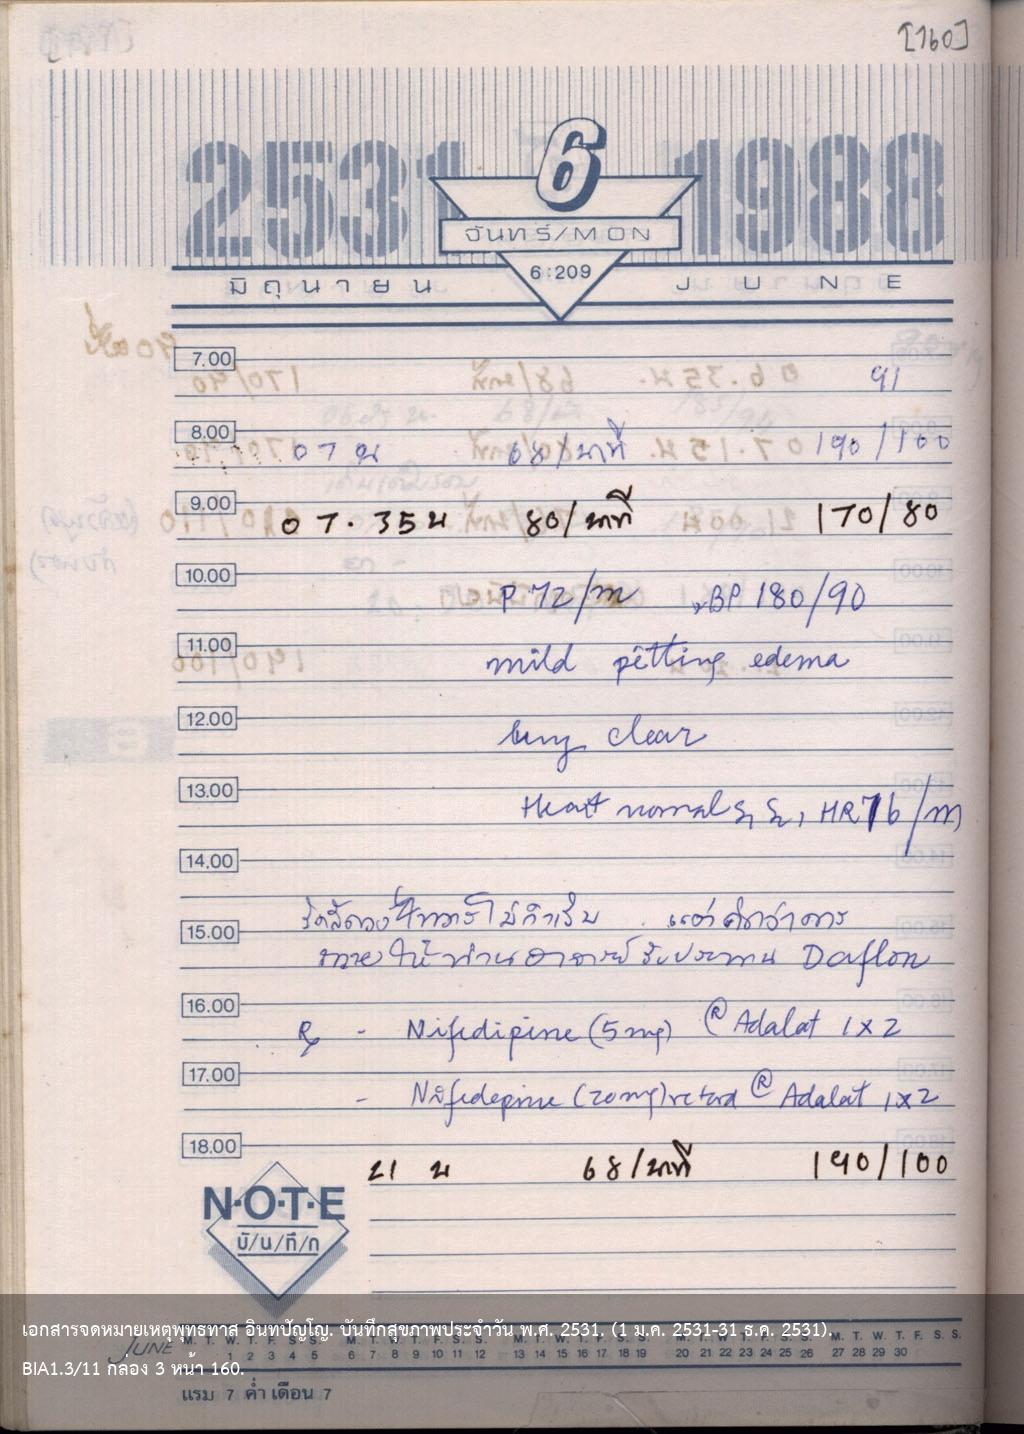 [160]
2531 6 1988
จันทร์/MON
6:209
มิถุนายน JUNE
7.00
91
8.00
07 น 68/นาที 190/100
9.00
07.35 น 80/นาที 170/80
10.00
P 72/m BP 180/90
11.00
mild pitting edema
12.00
lung clear
13.00
Heart normal S1 S2, HR 76/m
14.00
ริดสีดวง ไม่กำเริบ . แต่
15.00
ให้ท่านอาจารย์รับประทาน Daflon
16.00
Rx - Nifedipine (5 mg) ® Adalat 1x2
17.00
- Nifedepine (20mg) retard ® Adalat 1x2
18.00
21 น 68/นาที 190/100
N·O·T·E
บั/น/ทึ/ก
เอกสารจดหมายเหตุพุทธทาส อินทปัญโญ. บันทึกสุขภาพประจำวัน พ.ศ. 2531. (1 ม.ค. 2531-31 ธ.ค. 2531).
BIA1.3/11 กล่อง 3 หน้า 160.
JUNE M. T. W. T. F. S. S. M. T. W. T. F. S. S. M. T. W. T. F. S. S. M. T. W. T. F. S. S. M. T. W. T. F. S. S.
1 2 3 4 5 6 7 8 9 10 11 12 13 14 15 16 17 18 19 20 21 22 23 24 25 26 27 28 29 30
แรม 7 ค่ำ เดือน 7